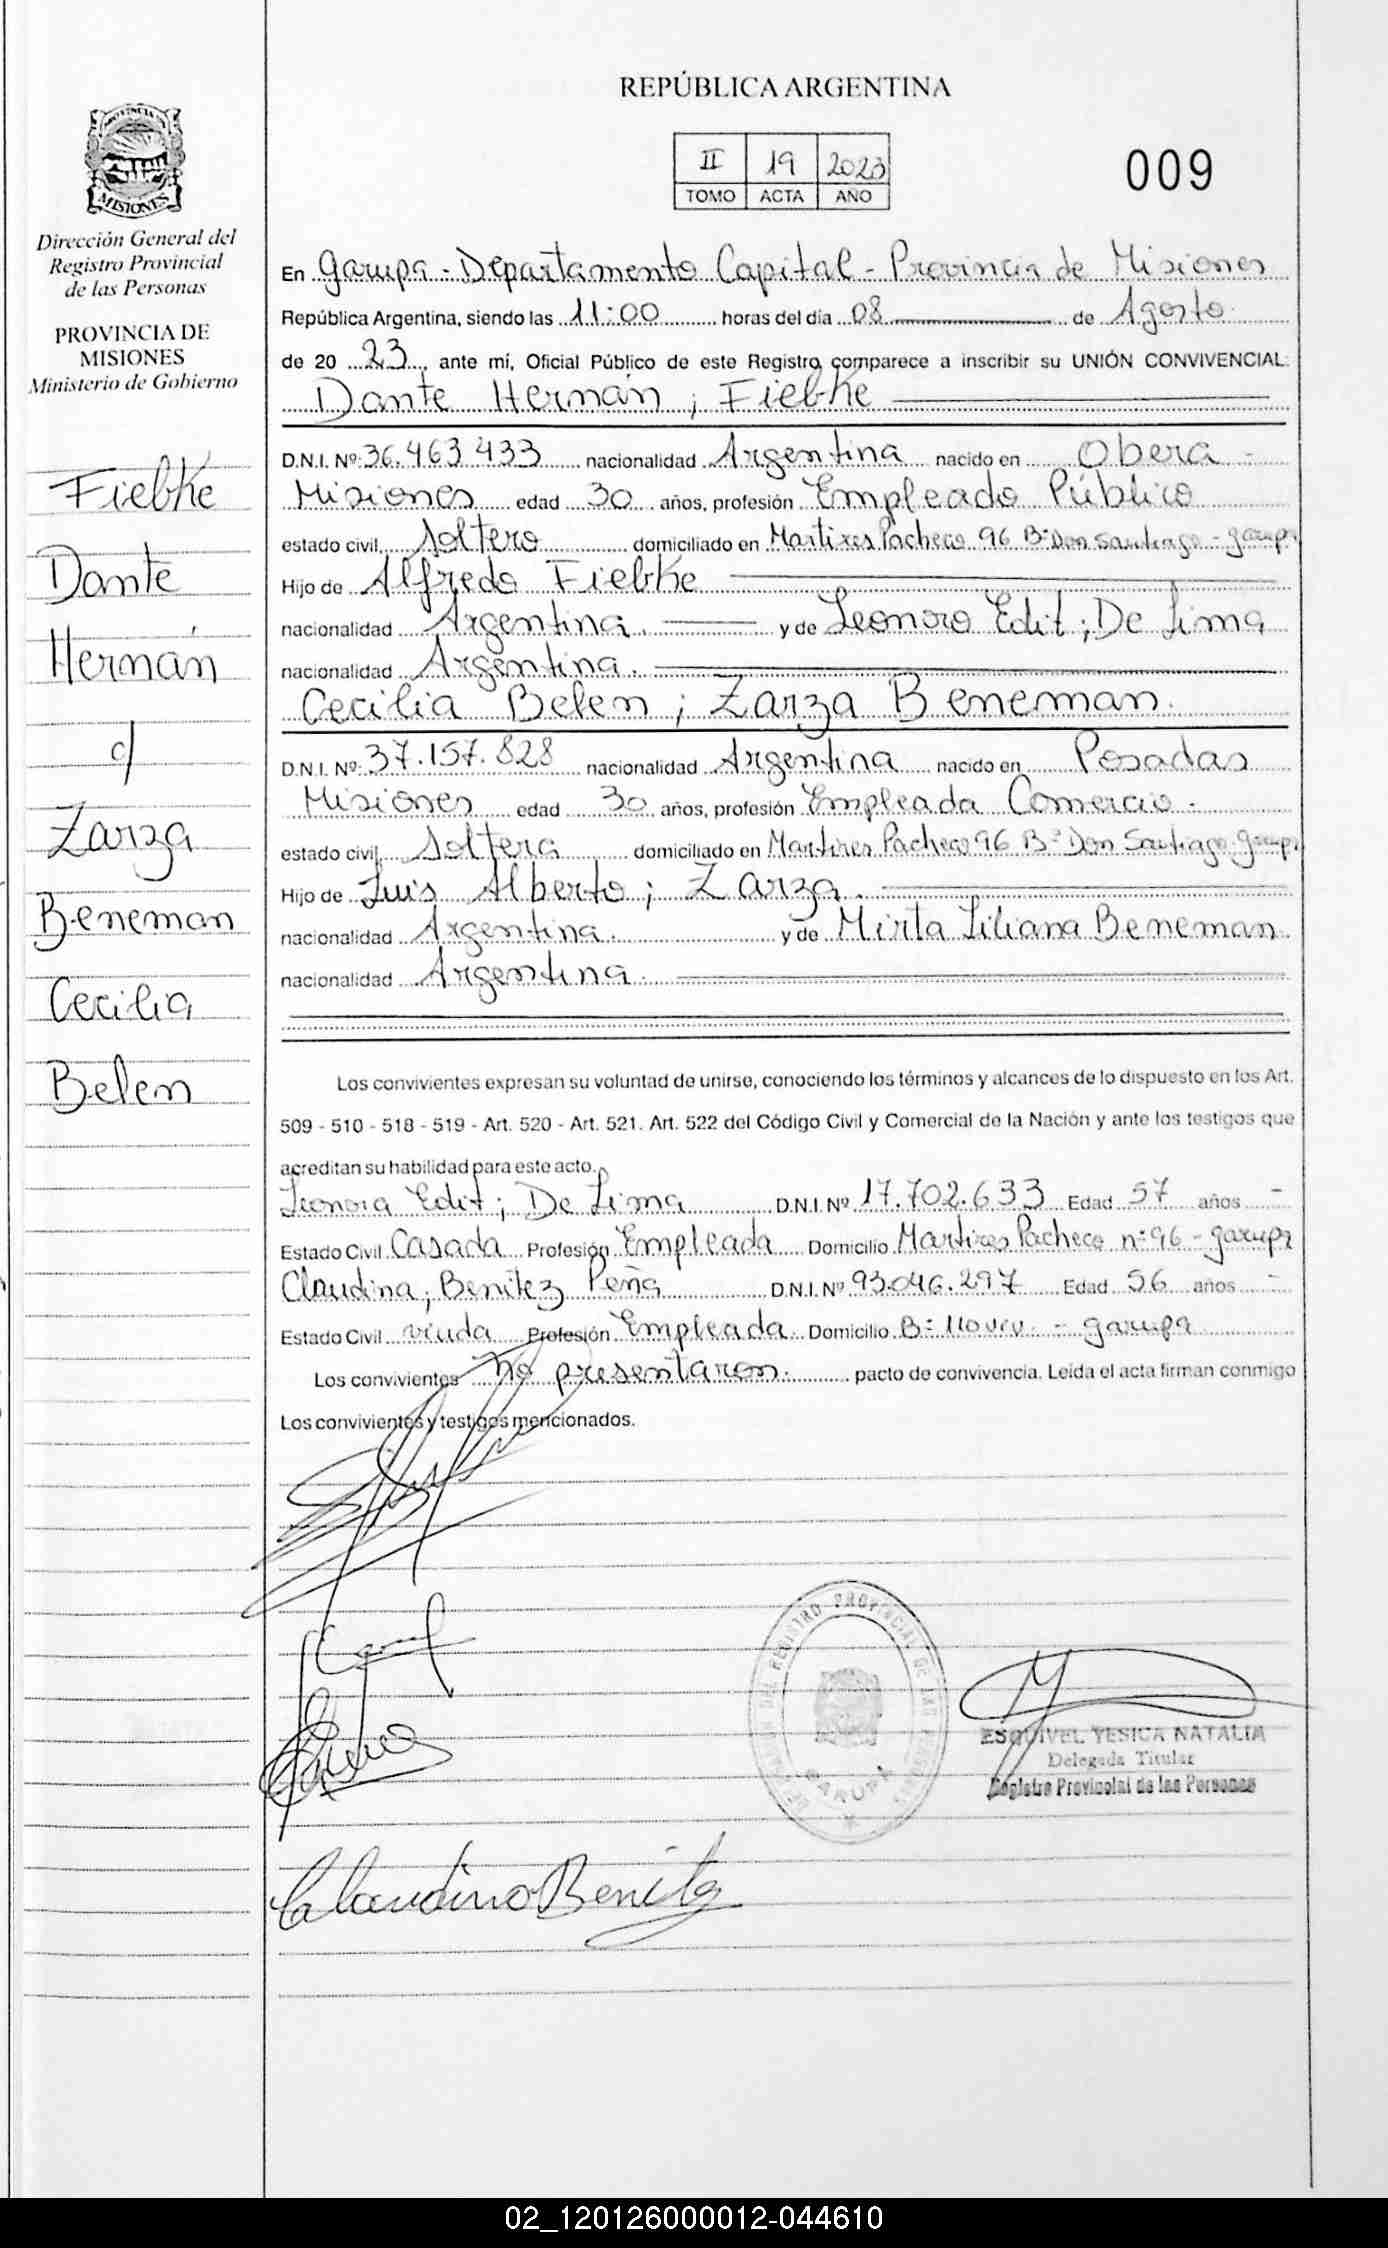 REPÚBLICA ARGENTINA
II 19 2023
TOMO ACTA AÑO
009
PROVINCIA DE
MISIONES
Dirección General del
Registro Provincial
de las Personas
PROVINCIA DE
MISIONES
Ministerio de Gobierno
Fiebke
Dante
Hernán
c/
Zarza
Beneman
Cecilia
Belen
En Garupa - Departamento Capital - Provincia de Misiones
República Argentina, siendo las 11:00 horas del día 08 de Agosto
de 20 23, ante mí, Oficial Público de este Registro comparece a inscribir su UNIÓN CONVIVENCIAL:
Dante Hernán ; Fiebke
D.N.I. Nº 36.463 433 nacionalidad Argentina nacido en Obera -
Misiones edad 30 años, profesión Empleado Público
estado civil Soltero domiciliado en Martires Pacheco 96 Bº Don Santiago - Garupa
Hijo de Alfredo Fiebke
nacionalidad Argentina. y de Leonora Edit ; De Lima
nacionalidad Argentina.
Cecilia Belen ; Zarza Beneman.
D.N.I. Nº 37.157.828 nacionalidad Argentina nacido en Posadas
Misiones edad 30 años, profesión Empleada Comercio.
estado civil Soltera domiciliado en Martires Pacheco 96 Bº Don Santiago Garupa
Hijo de Luis Alberto ; Zarza.
nacionalidad Argentina. y de Mirta Liliana Beneman.
nacionalidad Argentina.
Los convivientes expresan su voluntad de unirse, conociendo los términos y alcances de lo dispuesto en los Art.
509 - 510 - 518 - 519 - Art. 520 - Art. 521. Art. 522 del Código Civil y Comercial de la Nación y ante los testigos que
acreditan su habilidad para este acto.
Leonora Edit ; De Lima D.N.I. Nº 17.702.633 Edad 57 años -
Estado Civil Casada Profesión Empleada Domicilio Martires Pacheco nº 96 - Garupa
Claudina ; Benitez Peña D.N.I. Nº 93.046.297 Edad 56 años -
Estado Civil viuda Profesión Empleada Domicilio Bº 110 viv. - Garupa
Los convivientes No presentaron. pacto de convivencia. Leída el acta firman conmigo
Los convivientes y testigos mencionados.
REGISTRO PROVINCIAL DE LAS PERSONAS
GARUPA
ESQUIVEL YESICA NATALIA
Delegada Titular
Registro Provincial de las Personas
Claudina Benitez
02_120126000012-044610